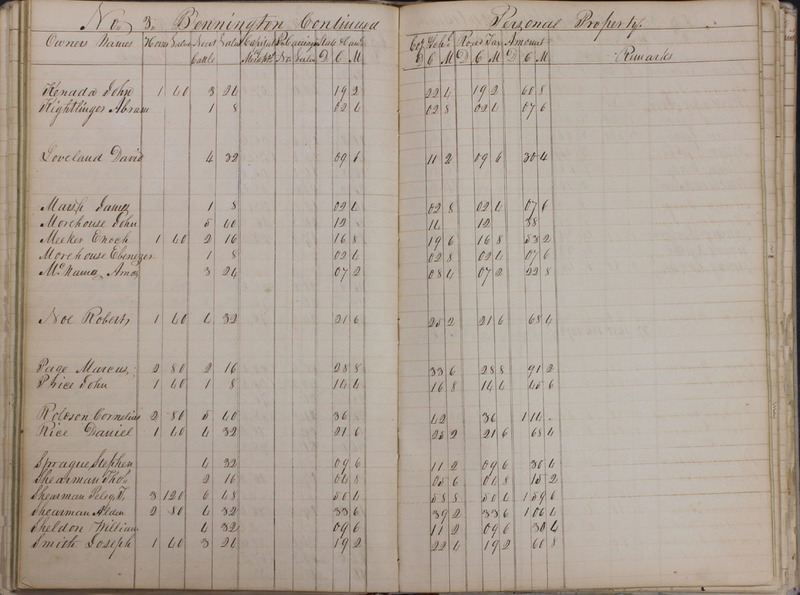 No. 3. Bennington Continued Personal Property
Owners Names Horses Value Neat Cattle Value State & Can. D C M Co. & Sch. D C M Road Tax D C M Amount D C M Remarks
Kenada John 1 40 3 24 19 2 22 4 19 2 60 8
Kightlinger Abram 1 8 02 4 02 8 02 4 07 6
Loveland David 4 32 09 6 11 2 09 6 30 4
Marsh James 1 8 02 4 02 8 02 4 07 6
Morehouse John 5 40 12 14 12 38
Meeker Enoch 1 40 2 16 16 8 19 6 16 8 53 2
Morehouse Ebenezer 1 8 02 4 02 8 02 4 07 6
McNama Amos 3 24 07 2 08 4 07 2 22 8
Noe Robert 1 40 4 32 21 6 25 2 21 6 68 4
Page Marcus 2 80 2 16 28 8 33 6 28 8 91 2
Price John 1 40 1 8 14 4 16 8 14 4 45 6
Robson Cornelius 2 80 5 40 36 42 36 1 14
Rice Daniel 1 40 4 32 21 6 25 2 21 6 68 4
Sprague Stephen 4 32 09 6 11 2 09 6 30 4
Shearman Thos. 2 16 04 8 05 6 04 8 15 2
Shearman Peleg T. 3 120 6 48 50 4 58 8 50 4 1 59 6
Shearman Alden 2 80 4 32 33 6 39 2 33 6 1 06 4
Sheldon William 4 32 09 6 11 2 09 6 30 4
Smith Joseph 1 40 3 24 19 2 22 4 19 2 60 8